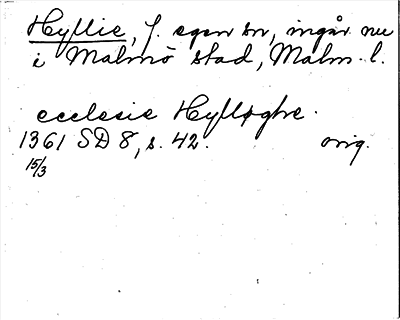 Hyllie, f. egen sn, ingår nu
i Malmö stad, Malm. l.
ecclesie Hylløghe.
1361 SD 8, s. 42. orig.
15/3